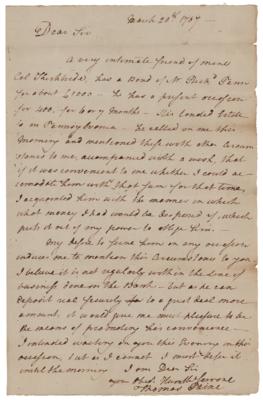 March 20th 1787
Dear Sir
A very intimate friend of mine
Col Kirkbride, has a Bond of Mr Richd Penn
for about £1000 — He has a present occasion
for 400, for 6 or 7 Months — His landed Estate
is in Pennsylvania — He called on me this
Morning and mentioned these with other Circum
stances to me, accompanied with a wish, that
if it was convenient to me whether I could ac
comodate him with that Sum for that time,
I acquainted him with the manner in which
what money I had would be disposed of, which
puts it out of my power to oblige him.
My desire to serve him on any occasion
induces me to mention this Circumstance to you
I believe it is not regularly within the line of
business done on the Bank — but as he can
deposit real Security to a great deal more
amount, it would give me much pleasure to be
the means of promoting this convenience —
I intended waiting on you this Evening on this
occasion, but as I cannot I must defer it
until the morning I am Dear Sir
your Obedt Humble Servant
Thomas Paine